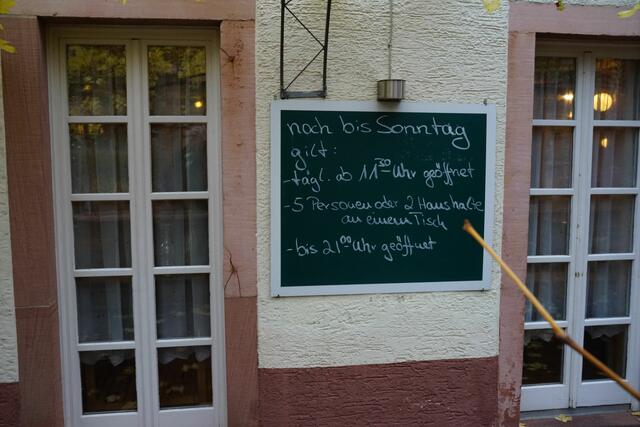 noch bis Sonntag
gilt:
- tägl. ab 11³⁰ Uhr geöffnet
- 5 Personen oder 2 Haushalte
an einem Tisch
- bis 21⁰⁰ Uhr geöffnet